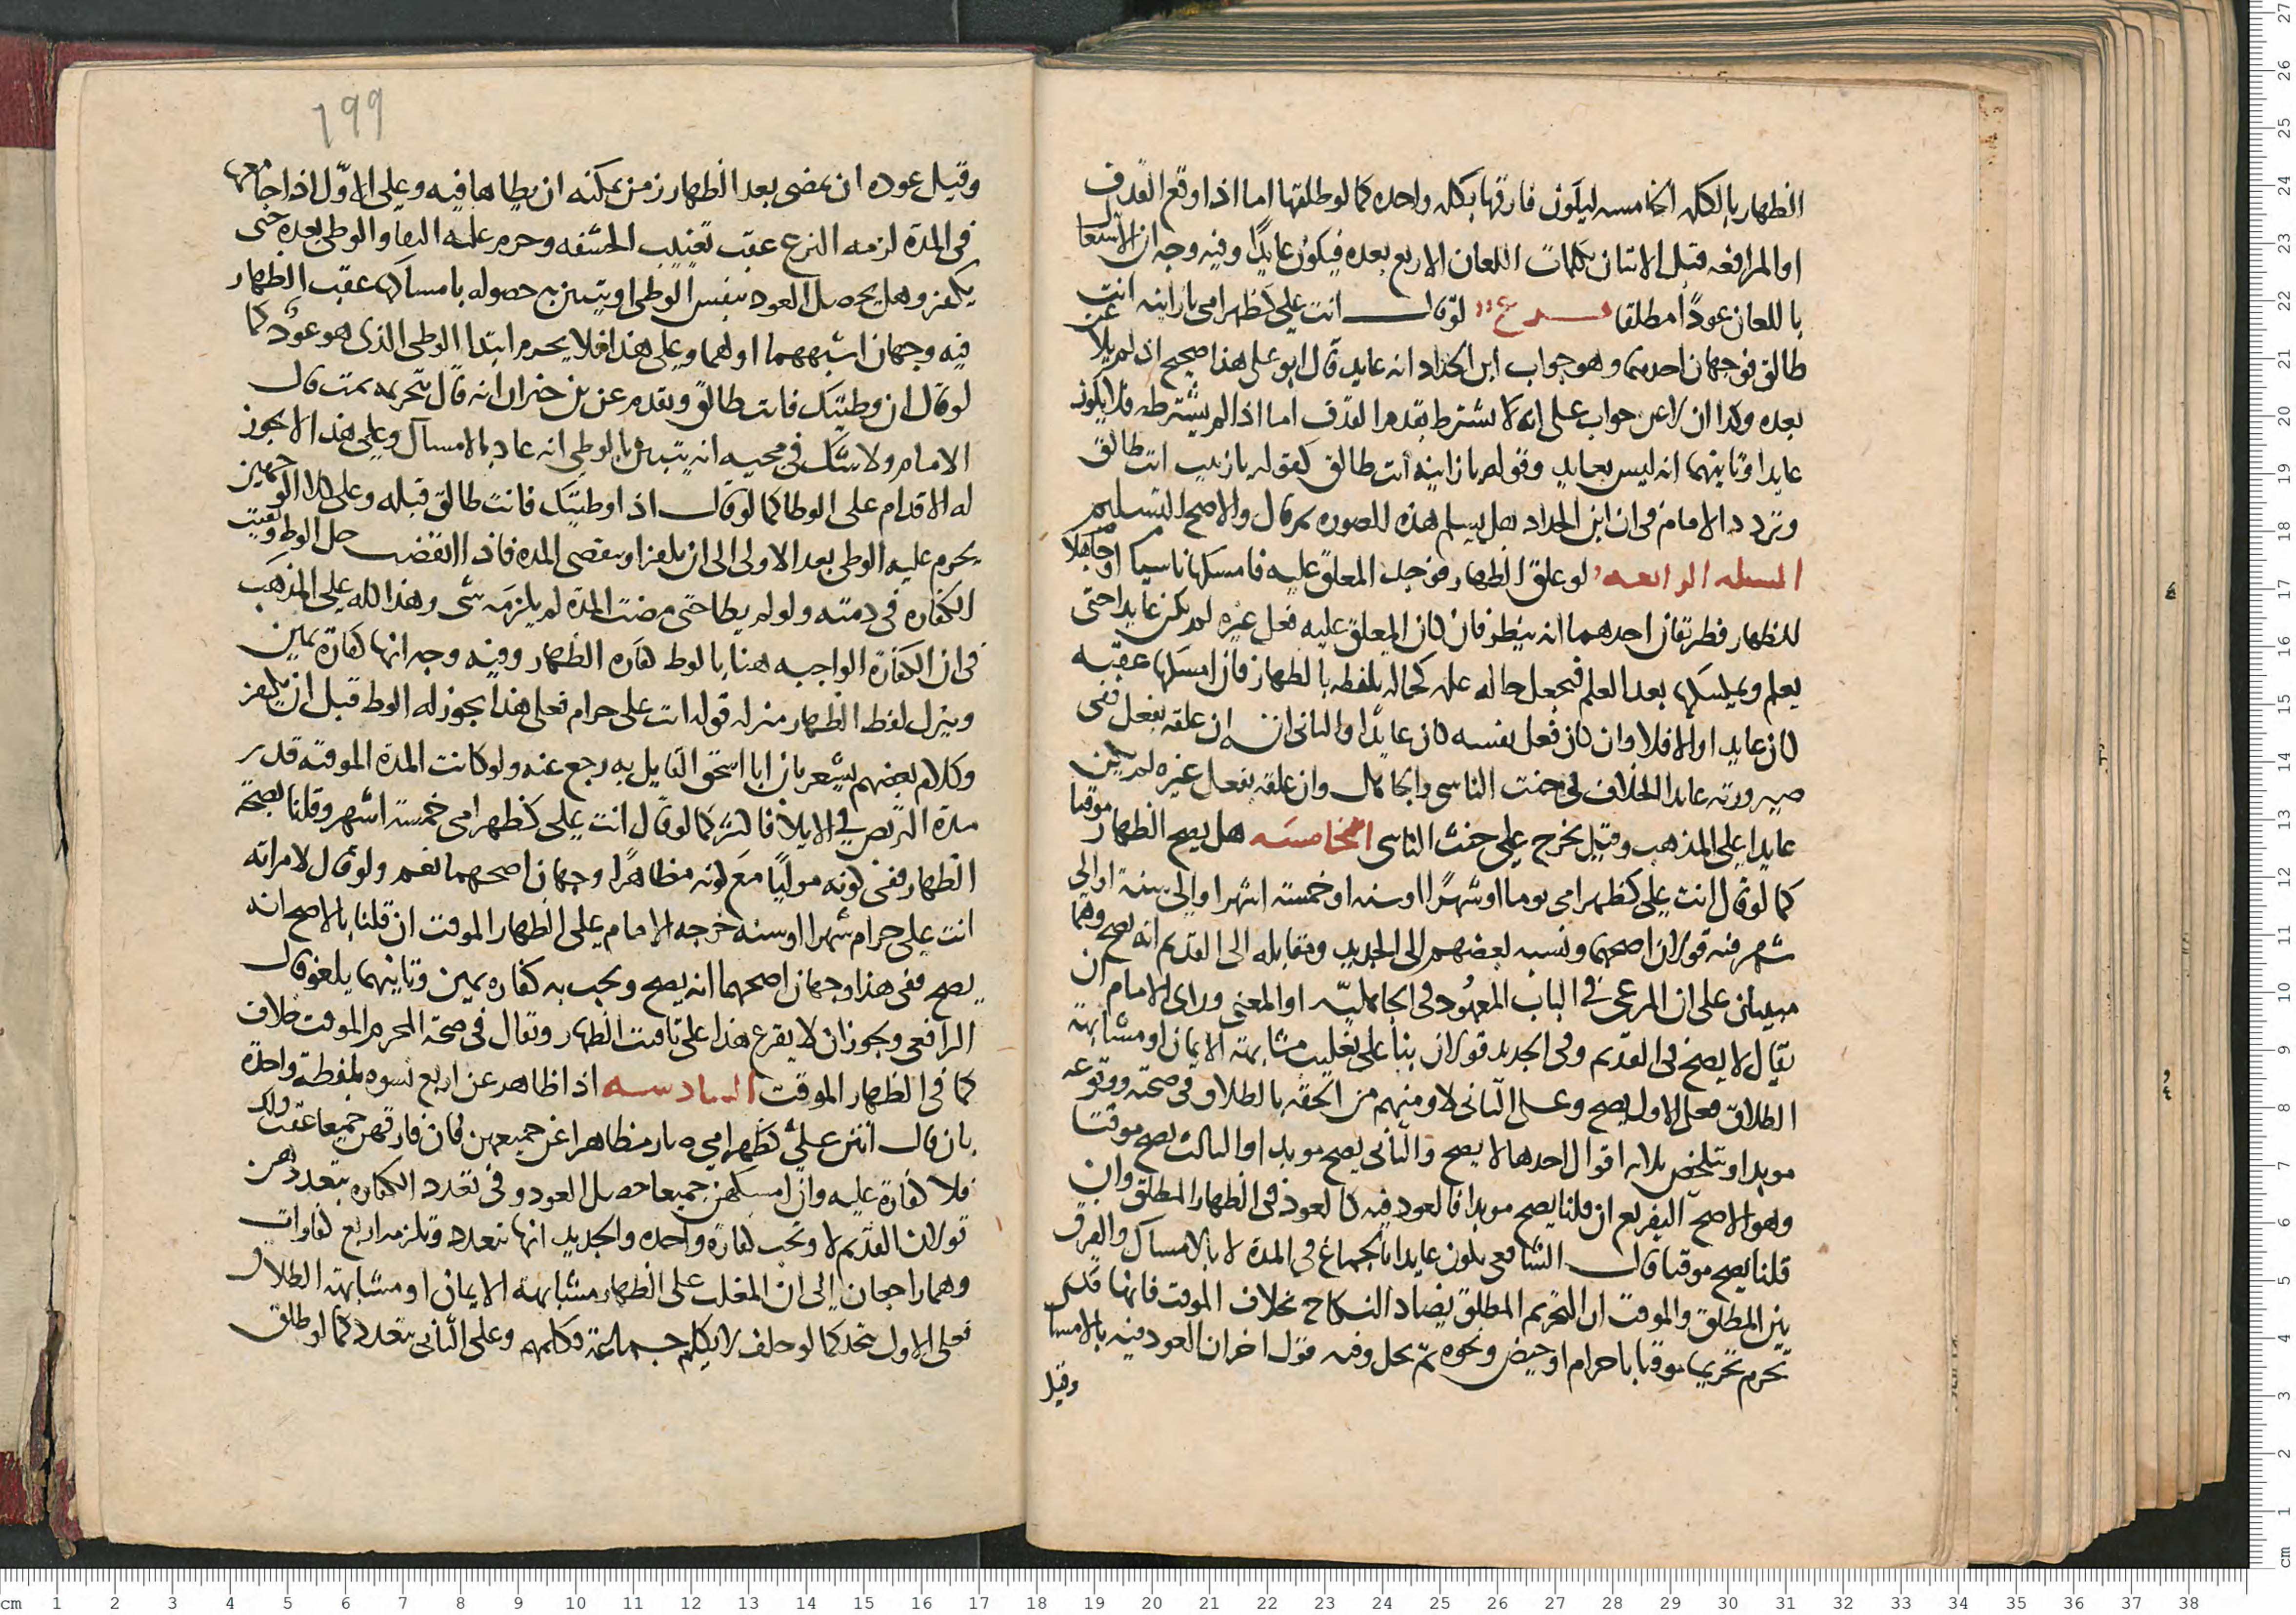 الظهار بالكلمه الخامسه ليكون فارقها بكلمه واحده كما لو طلقها اما اذا وقع القذف
او المرافعه قبل الاتيان بكلمات اللعان الاربع بعده فيكون عايدًا وفيه وجه ان الاشتغال
باللعان عودًا مطلقا فرع لو قال انت علي كظهر امي يا زانيه انت
طالق فوجهان احدهما وهو جواب ابن الحداد انه عايد قال ابو علي هذا صحيح اذ لم يلاعن
بعده وكذا ان لاعن جواب على انه لا يشترط تقدم القذف اما اذا لم يشترطه فلا يكون
عايدا وثانيهما انه ليس بعايد وقوله يا زانيه انت طالق كقوله يا زينب انت طالق
وتردد الامام في ان ابن الحداد هل يسلم هذه الصوره ثم قال والاصح التسليم
المسله الرابعه لو علق الظهار فوجد المعلق عليه فامسكها ناسيا او جاهلا
للظهار فطريقان احدهما انه ينظر فان كان المعلق عليه فعل غيره لم يكن عايدا حتى
يعلم ويمسكها بعد العلم فيجعل حاله علمه كحاله تلفظه بالظهار فان امسكها عقبه
كان عايدا والا فلا وان كان فعل نفسه كان عايدًا والثاني انه ان علقه بفعل ففي
صيرورته عايدا الخلاف في حنث الناسي والجاهل وان علقه بفعل غيره لم يكن
عايدا على المذهب وقيل يخرج على حنث الناسي الخامسه هل يصح الظهار موقتا
كما لو قال انت علي كظهر امي يوما او شهرًا او سنه او خمسة اشهر او الى سنة او الى
شهر فيه قولان اصحهما ونسبه بعضهم الى الجديد ومقابله الى القديم انه يصح وهما
مبنيان على ان المرعي في الباب المعهود في الجاهلية او المعنى وراى الامام ان
يقال لا يصح في القديم وفي الجديد قولان بنا على تغليب مشابهة الايمان او مشابهة
الطلاق فعلى الاول يصح وعلى الثاني لا ومنهم من الحقه بالطلاق في صحته ووقوعه
موبدا ويتلخص ثلاثه اقوال احدها لا يصح والثاني يصح موبدا والثالث يصح موقتا
وهو الاصح التفريع ان قلنا يصح موبدا فالعود فيه كالعود في الظهار المطلق وان
قلنا يصح موقتا قال الشافعي يكون عايدا بالجماع في المدة لا بالامساك والفرق
بين المطلق والموقت ان التحريم المطلق يضاد النكاح بخلاف الموقت فانها قد
تحرم تحريما موقتا باحرام او حيض ونحوه ثم تحل وفيه قول اخر ان العود فيه بالامساك
وقيل
199
وقيل عوده ان يمضي بعد الظهار زمن يمكنه ان يطاها فيه وعلى الاوّل اذا جامعها
في المدة لزمه النزع عقب تغييب الحشفه وحرم عليه البقا والوطي بعده حتى
يكفر وهل يحصل العود بنفس الوطي او يتبين به حصوله بامساكه عقب الظهار
فيه وجهان اشبههما اولهما وعلى هذا فلا يحرم ابتدا الوطي الذي هو عود كما
لو قال ان وطيتك فانت طالق وتقدم عن بن خيران انه قال بتحريمه ثمت قال
الامام ولا شك في مجيه انه يتبين بالوطي انه عاد بالامساك وعلى هذا لا يجوز
له الاقدام على الوطا كما لو قال اذا وطيتك فانت طالق قبله وعلى كلا الوجهين
يحرم عليه الوطي بعد الاولى الى ان يكفر او ينقضي المدة فاذا انقضت حل الوطء وبقيت
الكفاره في ذمته ولو لم يطا حتى مضت المدة لم يلزمه شى وهذا كله على المذهب
في ان الكفارة الواجبه هنا بالوط كفاره الظهار وفيه وجه انها كفارة يمين
وينزل لفظ الظهار منزله قوله انت علي حرام فعلى هذا يجوز له الوط قبل ان يكفر
وكلام بعضهم يشعر بان ابا اسحق القايل به رجع عنه ولو كانت المدة الموقته قدر
مدة التربص في الايلا فاكثر كما لو قال انت علي كظهر امي خمسة اشهر وقلنا بصحة
الظهار ففي كونه موليًا مع كونه مظاهرًا وجهان اصحهما نعم ولو قال لامراته
انت علي حرام شهرا او سنه خرجه الامام على الظهار الموقت ان قلنا بالاصح انه
يصح ففي هذا وجهان اصحهما انه يصح ويجب به كفاره يمين وثانيهما يلغو قال
الرافعي ويجوز ان لا يفرع هذا على تاقيت الظهار ويقال في صحة المحرم الموقت خلاف
كما في الظهار الموقت السادسه اذا ظاهر عن اربع نسوه بلفظة واحدة
بان قال انتن علي كظهر امي صار مظاهرا عن جميعهن فان فارقهن جميعا عقب ذلك
فلا كفارة عليه وان امسكهن جميعا حصل العود وفي تعدد الكفاره بتعددهن
قولان القديم لا وتجب كفارة واحده والجديد انها تتعدد وتلزمه اربع كفارات
وهما راجعان الى ان المغلب على الظهار مشابهة الايمان او مشابهة الطلاق
فعلى الاول يتحد كما لو حلف لا يكلم جماعة فكلمهم وعلى الثاني يتعدد كما لو طلق